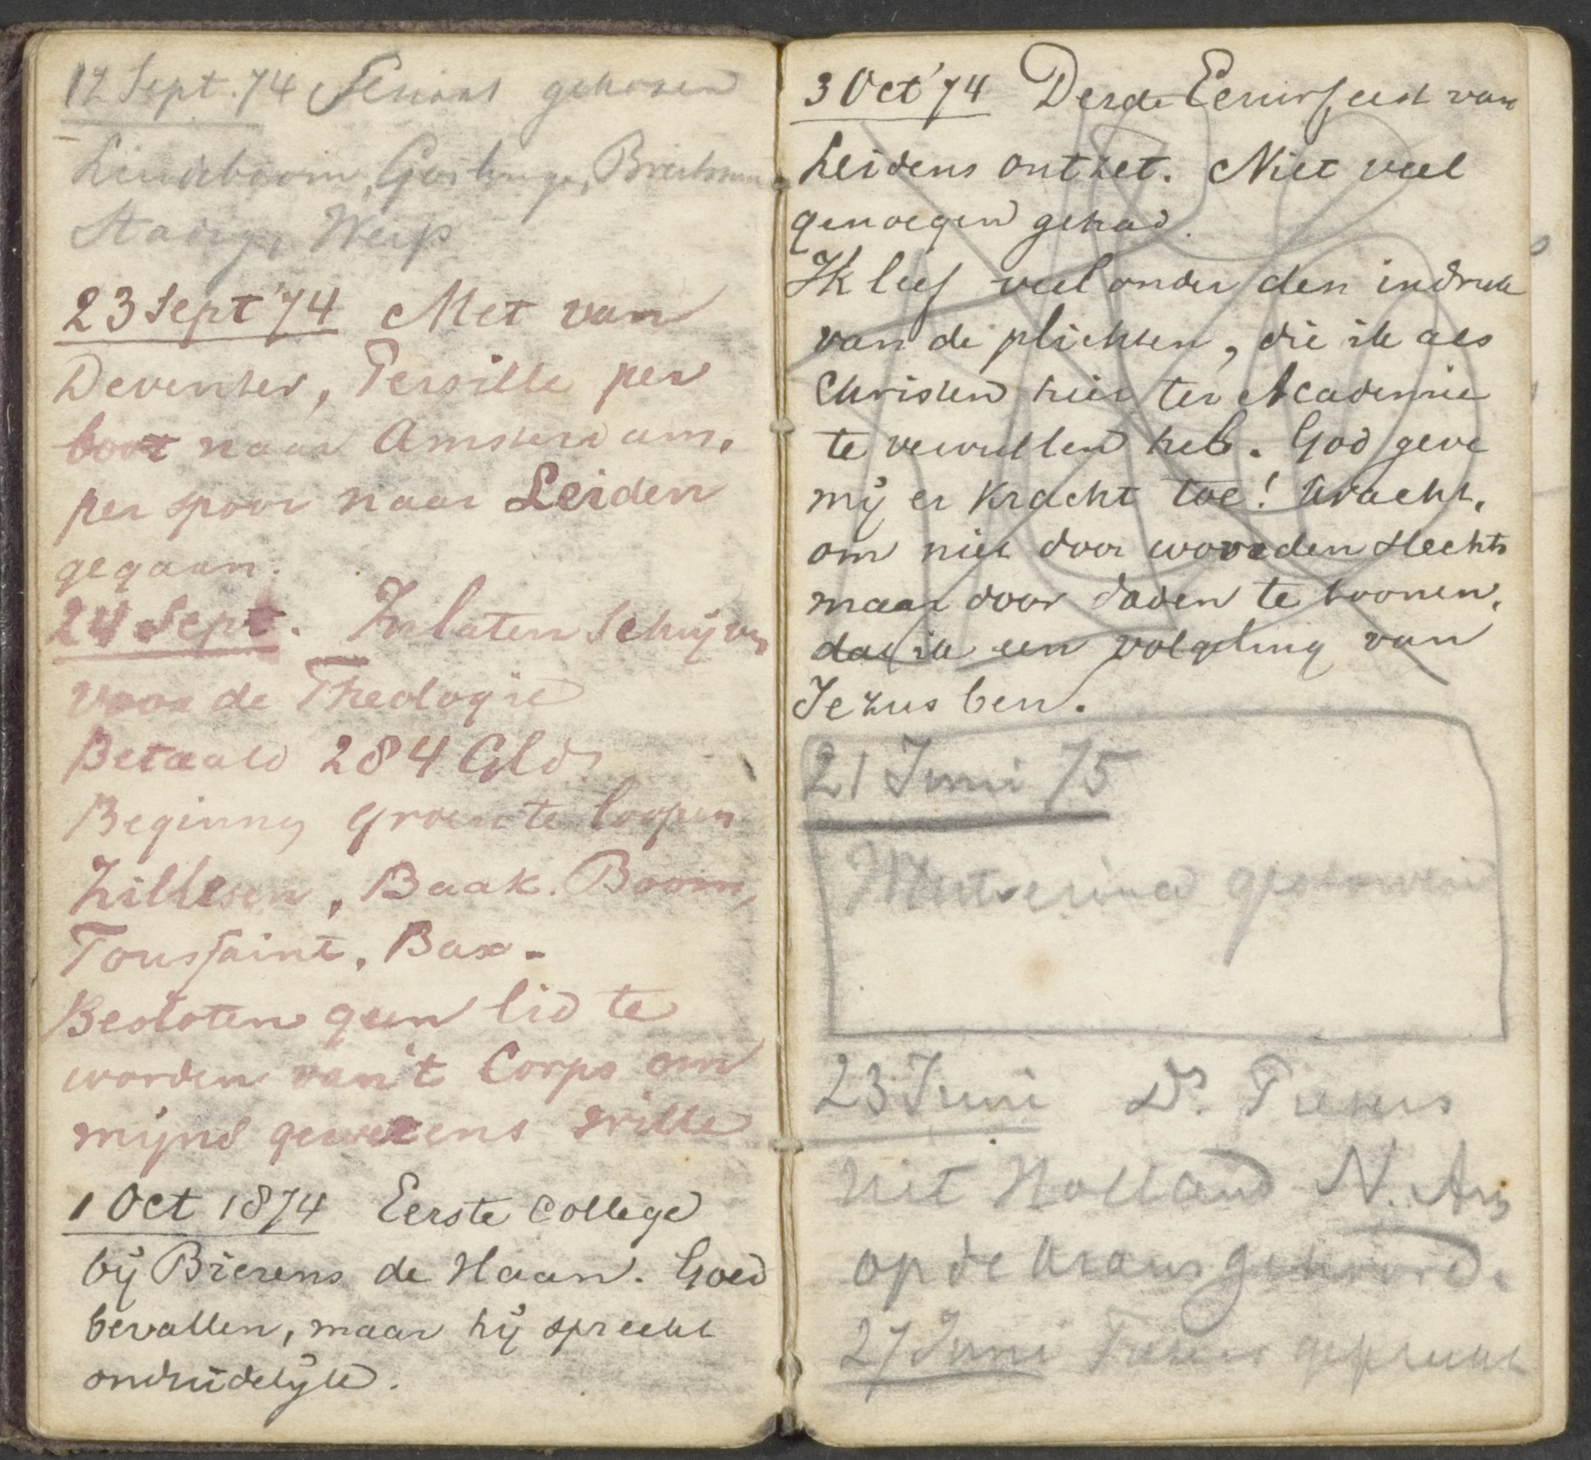 12 Sept. 74 Senaat gekozen
Lindeboom, Goslinga,
Stadig, Werp
23 Sept '74 Met van
Deventer, Persille per
boot naar Amsterdam,
per spoor naar Leiden
gegaan.
24 Sept. Inlaten Schrijven
voor de Theologie
Betaald 284 Glds
Beginnen groen te loopen
Zillesen, Baak. Boom,
Toussaint, Bax.
Besloten geen lid te
worden van 't Corps om
mijns gewetens wille
1 Oct 1874 Eerste College
bij Bierens de Haan. Goed
bevallen, maar hij spreekt
onduidelijk.
3 Oct '74 Derde Eeuwfeest van
Leidens ontzet. Niet veel
genoegen gehad.
Ik leef veel onder den indruk
van de plichten, die ik als
Christen hier ter Academie
te vervullen heb. God geve
mij er kracht toe! kracht,
om niet door woorden slechts
maar door daden te toonen,
dat ik een volgeling van
Jezus ben.
21 Juni 75
gestorven
23 Juni Ds.
uit Holland N. Am
op de Kraus gehoord.
27 Juni gepreekt